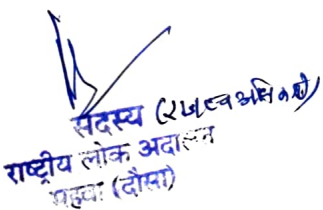 सदस्य (राजस्व अधिकारी)
राष्ट्रीय लोक अदालत
महवा (दौसा)